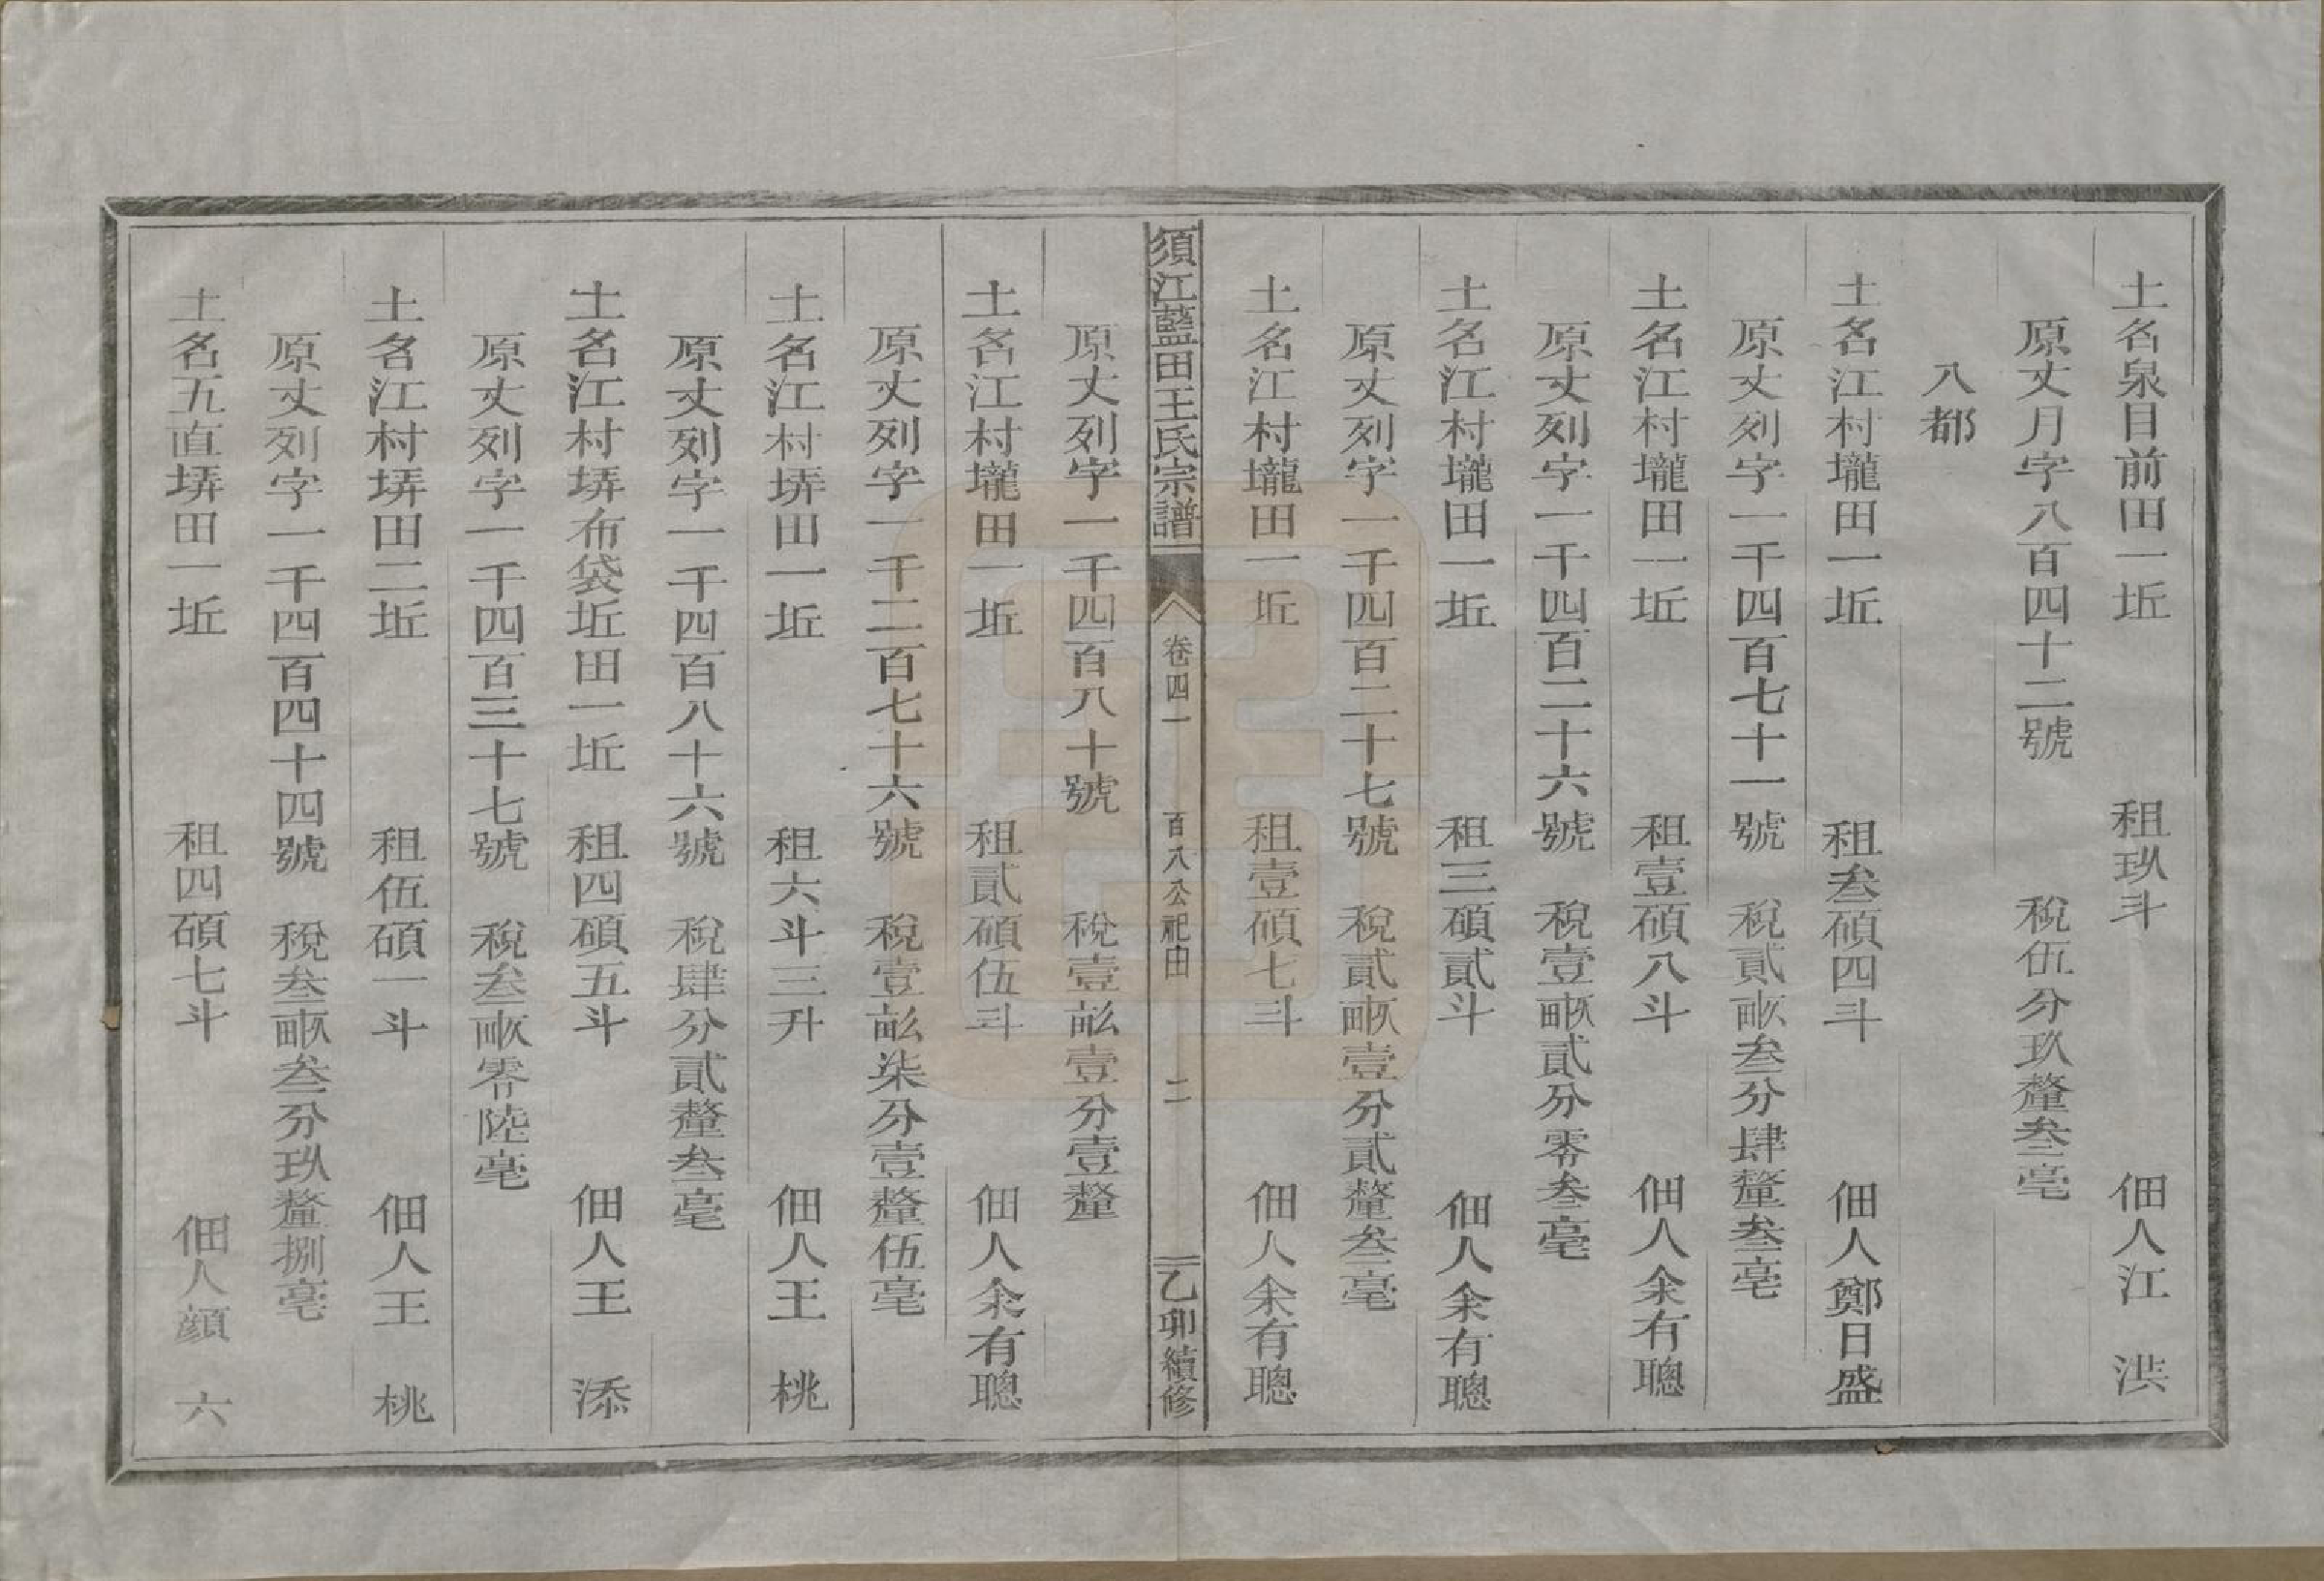 土名泉目前田一坵　租玖斗　佃人江　洪
原丈月字八百四十二號　稅伍分玖釐叁毫
八都
土名江村壠田一坵　租叁碩四斗　佃人鄭日盛
原丈列字一千四百七十一號　稅貳畞叁分肆釐叁毫
土名江村壠田一坵　租壹碩八斗　佃人余有聰
原丈列字一千四百二十六號　稅壹畞貳分零叁毫
土名江村壠田一坵　租三碩貳斗　佃人余有聰
原丈列字一千四百二十七號　稅貳畞壹分貳釐叁毫
土名江村壠田一坵　租壹碩七斗　佃人余有聰
須江藍田王氏宗譜　卷四一　百八公祀由　二　乙卯續修
原丈列字一千四百八十號　稅壹畝壹分壹釐
土名江村壠田一坵　租貳碩伍斗　佃人余有聰
原丈列字一千二百七十六號　稅壹畝柒分壹釐伍毫
土名江村塝田一坵　租六斗三升　佃人王　桃
原丈列字一千四百八十六號　稅肆分貳釐叁毫
土名江村塝布袋坵田一坵　租四碩五斗　佃人王　添
原丈列字一千四百三十七號　稅叁畞零陸毫
土名江村塝田二坵　租伍碩一斗　佃人王　桃
原丈列字一千四百四十四號　稅叁畞叁分玖釐捌毫
土名五直塝田一坵　租四碩七斗　佃人顔　六